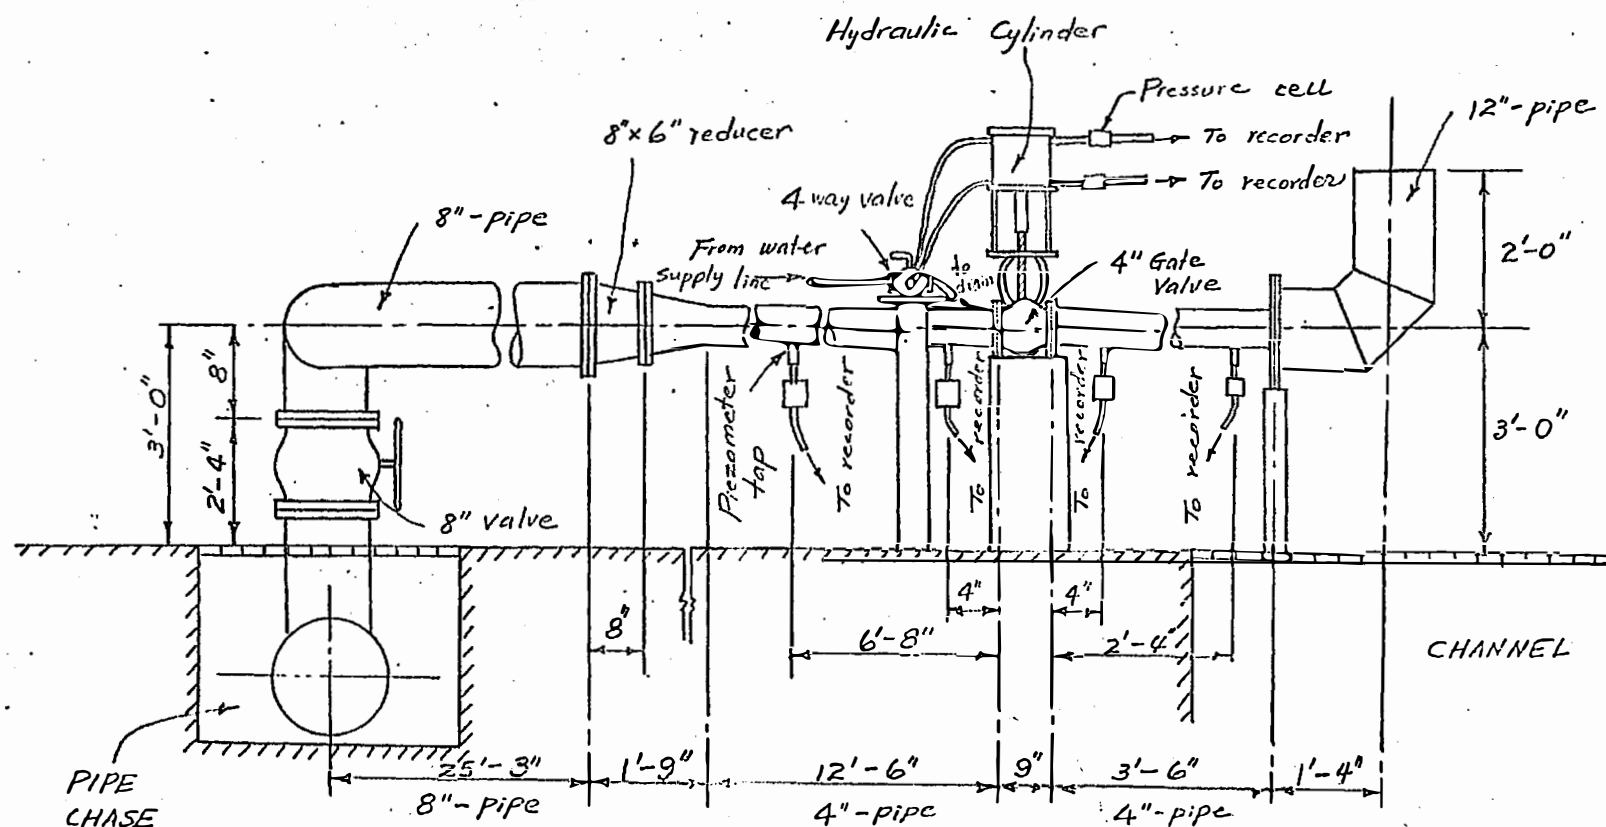 Hydraulic Cylinder
Pressure cell
12"-pipe
8"x 6" reducer
To recorder
To recorder
4-way valve
8"-pipe
From water
supply line
to
drain
4" Gate
Valve
2'-0"
3'-0"
8"
2'-4"
8" valve
Piezometer
tap
To recorder
To recorder
To recorder
To recorder
3'-0"
4"
4"
8"
6'-8"
2'-4"
CHANNEL
PIPE
CHASE
25'-3"
8"-pipe
1'-9"
12'-6"
4"-pipe
9"
3'-6"
4"-pipe
1'-4"